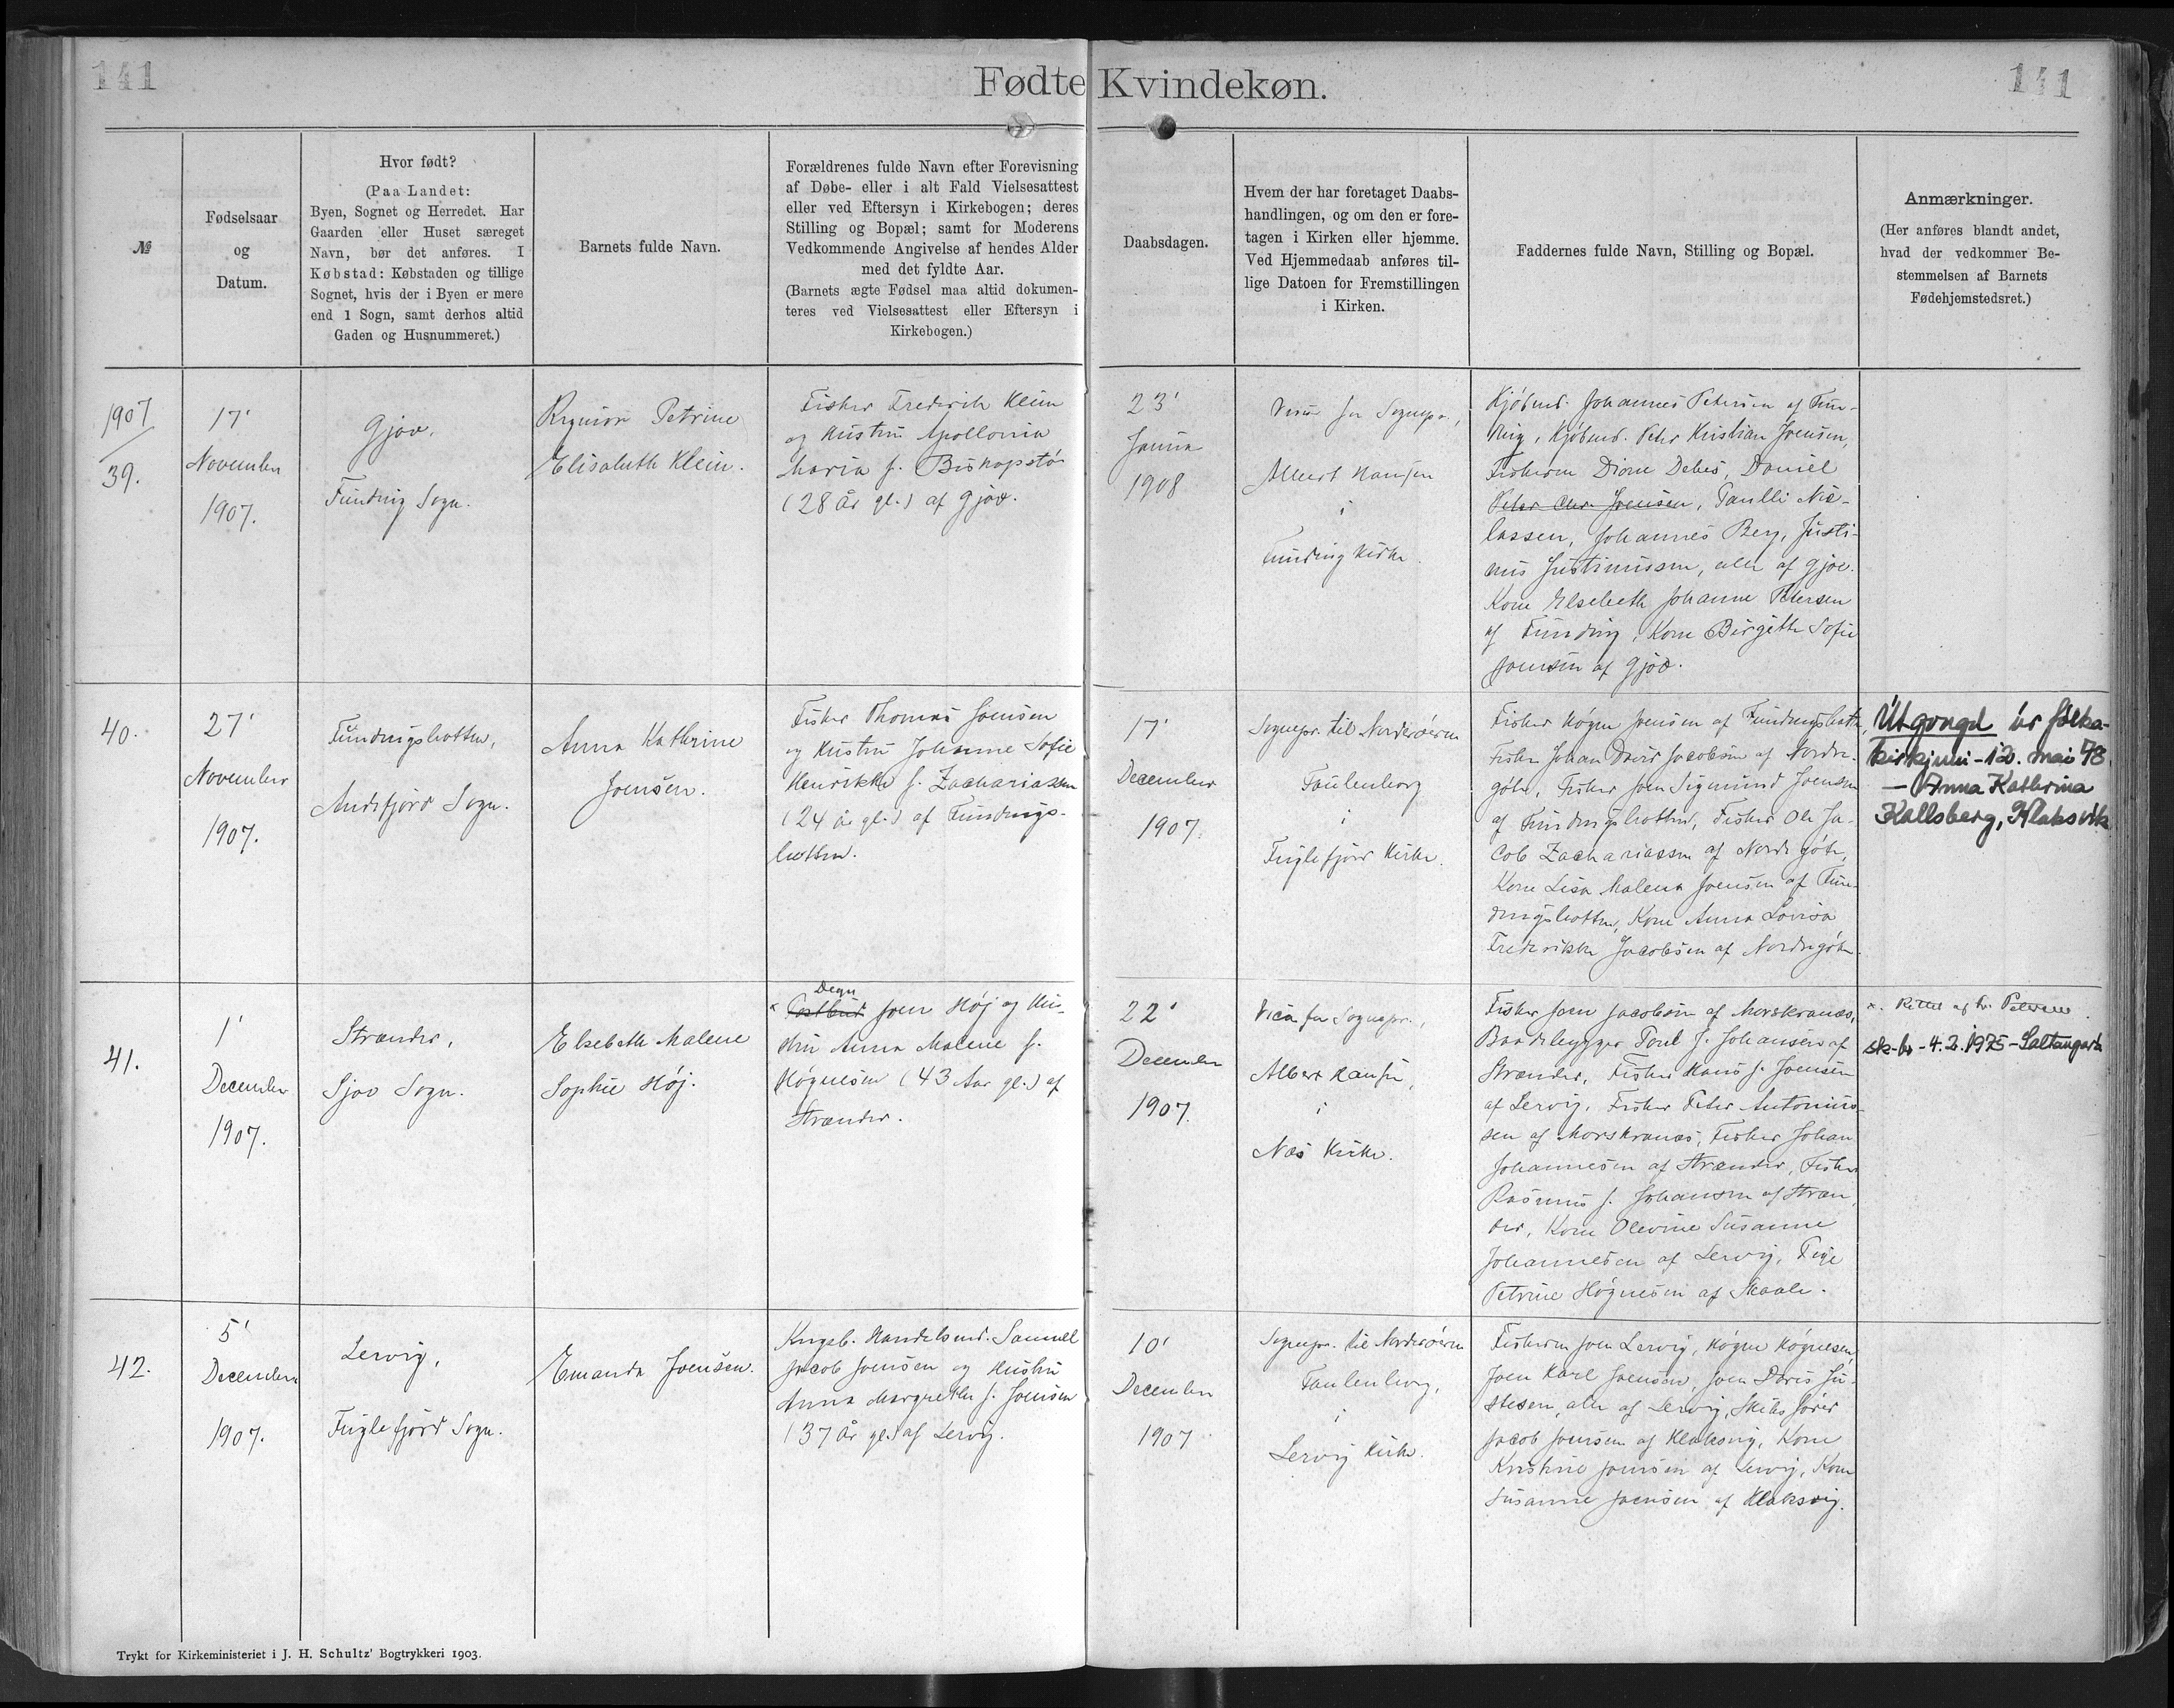 141
Fødte Kvindekøn.
141
№
Fødselsaar
og
Datum.
Hvor født?
(Paa Landet:
Byen, Sognet og Herredet. Har
Gaarden eller Huset særeget
Navn, bør det anføres. I
Købstad: Købstaden og tillige
Sognet, hvis der i Byen er mere
end 1 Sogn, samt derhos altid
Gaden og Husnummeret.)
Barnets fulde Navn.
Forældrenes fulde Navn efter Forevisning
af Døbe- eller i alt Fald Vielsesattest
eller ved Eftersyn i Kirkebogen; deres
Stilling og Bopæl; samt for Moderens
Vedkommende Angivelse af hendes Alder
med det fyldte Aar.
(Barnets ægte Fødsel maa altid dokumen-
teres ved Vielsesattest eller Eftersyn i
Kirkebogen.)
Daabsdagen.
Hvem der har foretaget Daabs-
handlingen, og om den er fore-
tagen i Kirken eller hjemme.
Ved Hjemmedaab anføres til-
lige Datoen for Fremstillingen
i Kirken.
Faddernes fulde Navn, Stilling og Bopæl.
Anmærkninger.
(Her anføres blandt andet,
hvad der vedkommer Be-
stemmelsen af Barnets
Fødehjemstedsret.)
1907
39.
17'
November
1907.
Gjov,
Funding Sogn.
Petrine
Elisabeth Klein.
Fisker Frederik Klein
og Hustru Apollonia
Maria f. Biskopstø
(28 år gl.) af Gjov.
23'
1908
for Sognepr.,
Albert Hansen
i
Funding Kirke.
Kjøbmd. Johannes Petersen af Fun-
ding, Kjøbmd. Peter Kristian Joensen,
Fiskerne Debes, Daniel
Peter Chr. Joensen, Paulli Nic-
lassen, Johannes Berg, Justi-
nus Justinussen, alle af Gjov.
Kone Elsebeth Johanne Petersen
af Funding, Kone Birgithe Sofie
Joensen af Gjov.
40.
27'
November
1907.
Fundingsbotten,
Andefjord Sogn.
Anna Kathrine
Joensen.
Fisker Thomas Joensen
og Hustru Johanne Sofie
Henrikke f. Zachariassen
(24 år gl.) af Fundings-
botten.
17'
December
1907.
Sognepr. til Norderøerne
Faulenborg
i
Fuglefjord Kirke.
Fisker Høgne Joensen af Fundingsbotten,
Fisker Johan David Jacobsen af Nordre-
gøte, Fisker Joen Sigmund Joensen
af Fundingsbotten, Fisker Ole Ja-
cob Zachariassen af Nordregøte,
Kone Lisa Malena Joensen af Fun-
dingsbotten, Kone Anna Lovisa
Fredrikke Jacobsen af Nordregøte.
Útgongd úr fólka-
kirkjuni - 12. mai 48.
- Anna Kathrina
Kallsberg, Klaksvík
41.
1'
December
1907.
Strænder,
Sjov Sogn.
Elsebeth Malene
Sophie Høj.
Degn
× Postbud Joen Høj og Hu-
stru Anna Malene f.
Høgnesen (43 Aar gl.) af
Strænder.
22'
December
1907.
for Sognepr.,
Albert Hansen,
i
Næs Kirke.
Fisker Joen Jacobsen af Morskranæs,
Baadebygger Poul J. Johansen af
Strænder, Fisker Hans J. Joensen
af Lervig, Fisker Peter Antonius-
sen af Morskranæs, Fisker Johan
Johannesen af Strænder, Fisker
Rasmus J. Johansen af Stræn-
der, Kone Olevine Susanne
Johannesen af Lervig, Pige
Petrine Høgnesen af Skaale.
×. Rettet af
sk-br - 4.2.1975 - Saltangará
42.
5'
December
1907.
Lervig,
Fuglefjord Sogn.
Emanda Joensen.
Kngsb. Handelsmd. Samuel
Jacob Joensen og Hustru
Anna Margrethe f. Joensen
(37 år gl.) af Lervig.
10'
December
1907
Sognepr. til Norderøerne
Faulenborg,
i
Lervig Kirke.
Fiskerne Joen Lervig, Høgne Høgnesen,
Joen Karl Joensen, Joen Davis Ju-
stesen, alle af Lervig, Skibsfører
Jacob Joensen af Klaksvig, Kone
Kristine Joensen af Lervig, Kone
Susanne Joensen af Klaksvig.
Trykt for Kirkeministeriet i J. H. Schultz' Bogtrykkeri 1903.